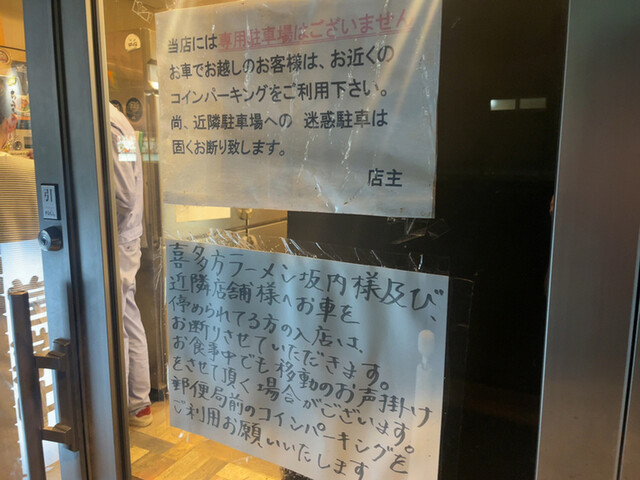 当店には専用駐車場はございません
お車でお越しのお客様は、お近くの
コインパーキングをご利用下さい。
尚、近隣駐車場への 迷惑駐車は
固くお断り致します。
店主
引
喜多方ラーメン坂内様及び、
近隣店舗様へお車を
停められてる方の入店は、
お断りさせていただきます。
お食事中でも移動のお声掛け
をさせて頂く場合がございます。
郵便局前のコインパーキングを
ご利用お願いいたします